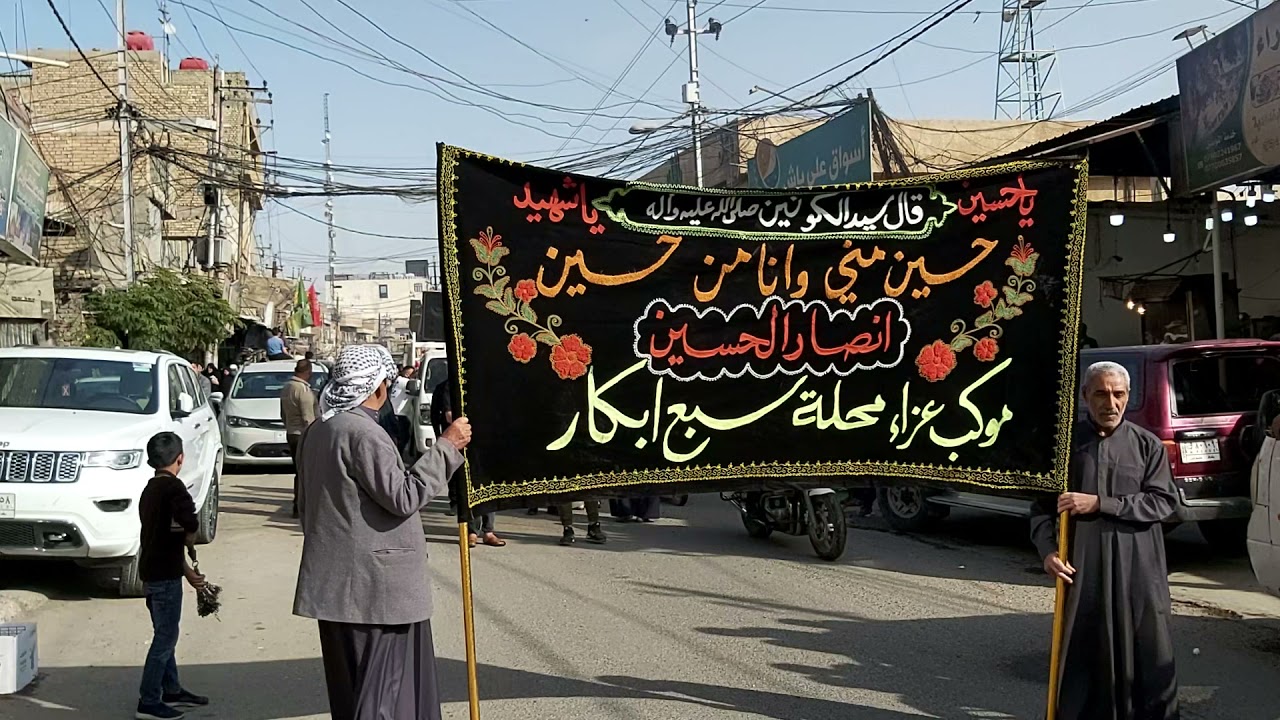 يا حسين
قال سيد الكونين صلى الله عليه واله
يا شهيد
حسين مني وانا من حسين
انصار الحسين
موكب عزاء محلة سبع ابكار
أسواق علي باشا
Jeep